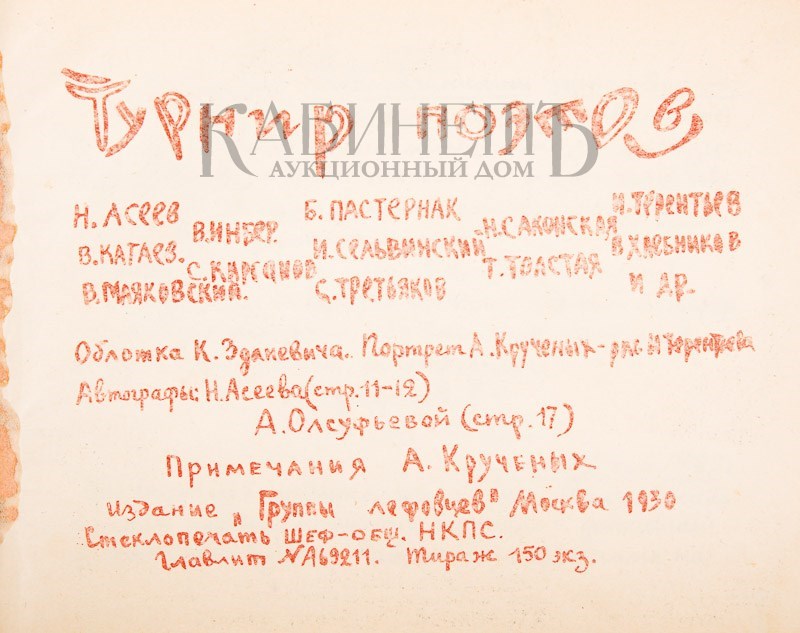 Турнир поэтов
КАБИНЕТЪ
АУКЦИОННЫЙ ДОМ
Н. АСЕЕВ
В. КАТАЕВ.
В. МАЯКОВСКИЙ.
В. ИНБЕР
С. КИРСАНОВ
Б. ПАСТЕРНАК
И. СЕЛЬВИНСКИЙ
С. ТРЕТЬЯКОВ
Н. САКОНСКАЯ
Т. ТОЛСТАЯ
И. ТЕРЕНТЬЕВ
В. ХЛЕБНИКОВ
И ДР.
Обложка К. Зданевича. Портрет А. Крученых - рис. И Терентьева
Автографы: Н. Асеева (стр. 11-12)
А. Олсуфьевой (стр. 17)
Примечания А. Крученых
издание „Группы лефовцев" Москва 1930
Стеклопечать ШЕФ-ОБЩ. НКПС.
Главлит № А69211. Тираж 150 экз.